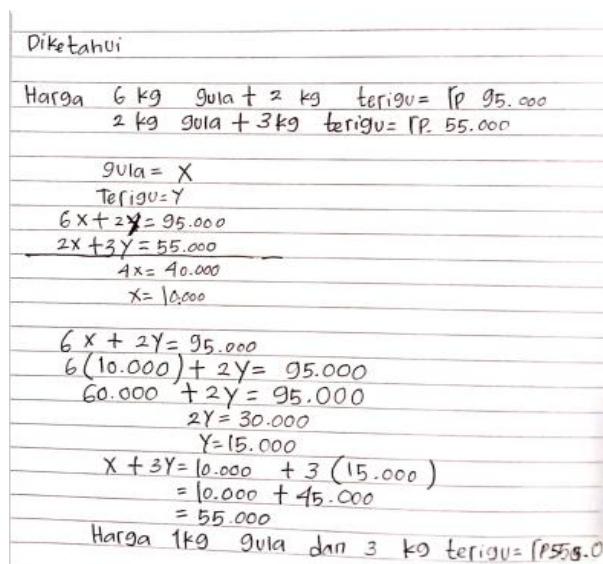 Diketahui
Harga 6 kg gula + 2 kg terigu = Rp 95.000
2 kg gula + 3 kg terigu = Rp. 55.000
gula = X
Terigu = Y
6x + 2y = 95.000
2x + 3y = 55.000
4x = 40.000
x = 10.000
6x + 2y = 95.000
6(10.000) + 2y = 95.000
60.000 + 2y = 95.000
2y = 30.000
y = 15.000
x + 3y = 10.000 + 3 (15.000)
= 10.000 + 45.000
= 55.000
Harga 1kg gula dan 3 kg terigu =